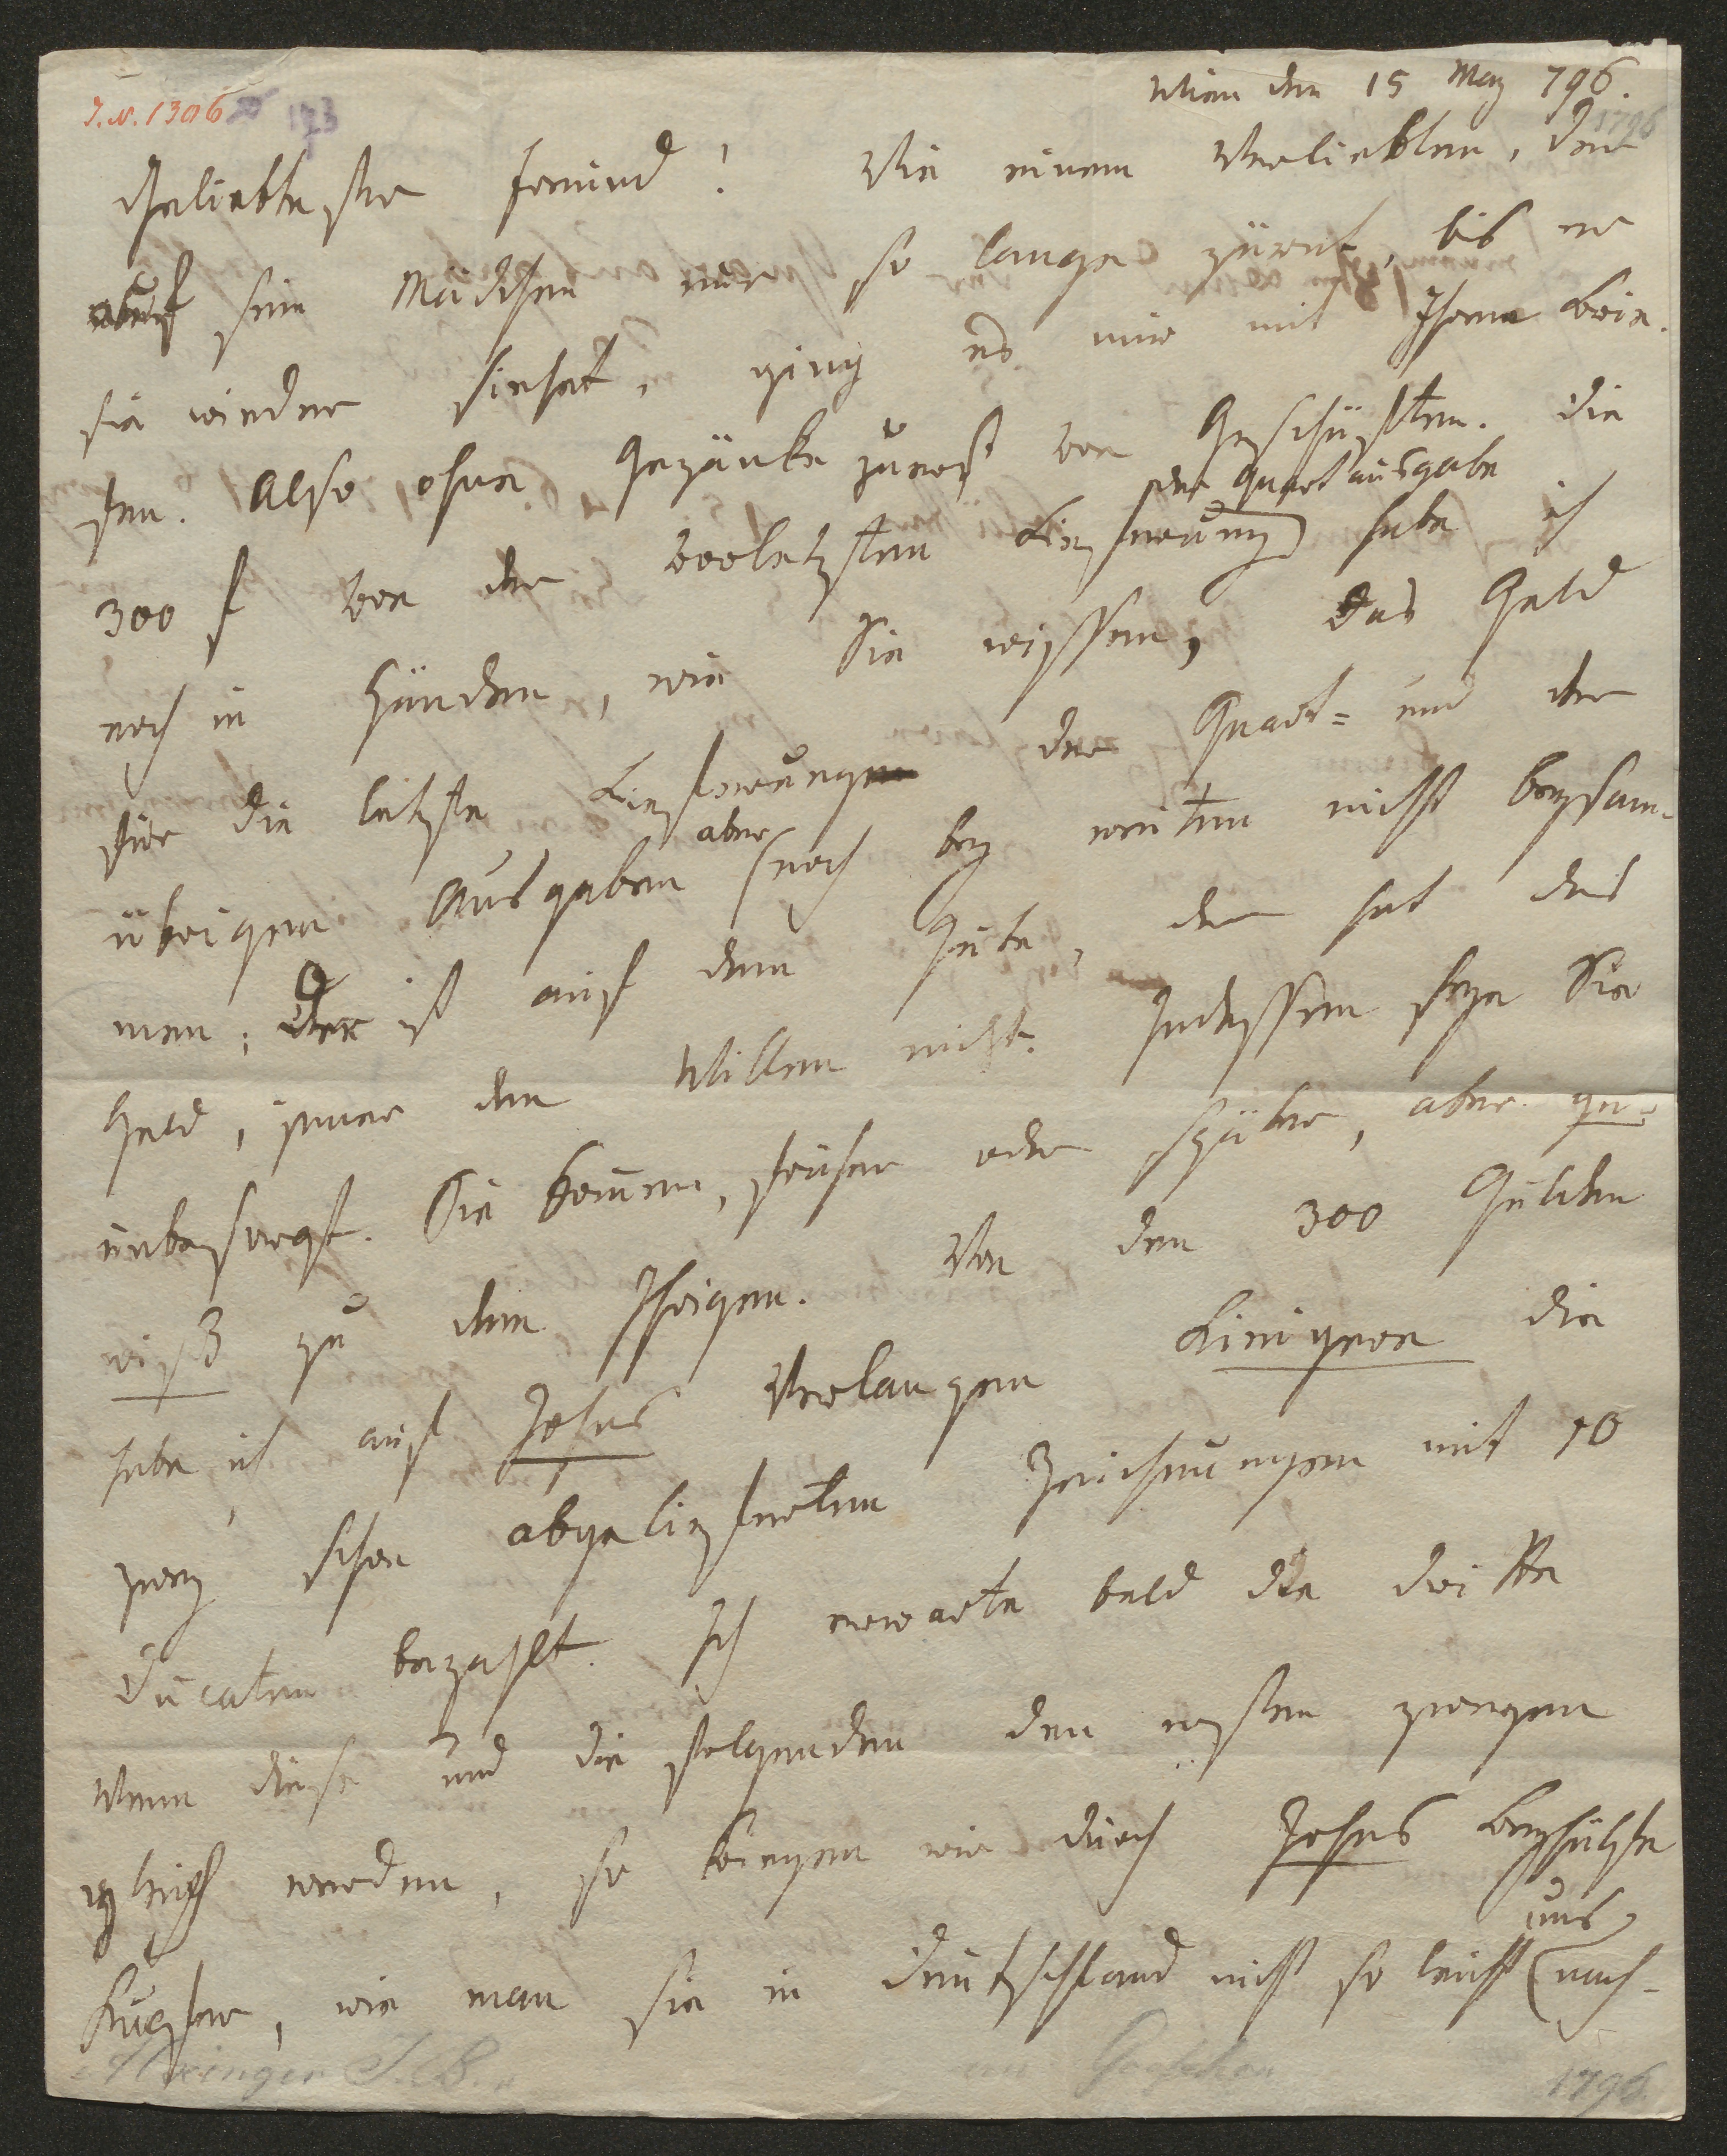 Wien den 15 May 796.
J.N. 1306 173
1796
Geliebtester Freund! Wie einem Verliebten, der
auf sein Mädchen nur so lange zürnt, bis er
sie wieder siehet, ging es mir mit Ihrem Brie-
fen. Also ohne Gezänke zuerst von Geschäften. Die
der Quartausgabe
300 f von der vorletzten Lieferung habe ich
noch in Händen, wie Sie wissen, das Geld
für die letzte Lieferung der Quart= und der
aber
übrigen Ausgaben noch bey weitem nicht beysam-
men; Der ist auf dem Gute, der hat das
Geld, jener den Willen nicht. Indessen seyn Sie
unbesorgt. Sie kommen, früher oder später, aber ge-
wiß zu dem Ihrigen. Von den 300 Gulden
habe ich auf Johns Verlangen Linigern die
zwey schon abgelieferten Zeichnungen mit 10
Ducaten bezahlt. Ich erwarte bald die dritte
Wenn diese und die folgenden den ersten zweyen
gleich werden, so kriegen wir durch Johns Beyhülfe
uns
Kupfer, wie man sie in Deutschland nicht so leicht nach-
Alxinger J.B. an Goeschen 1796